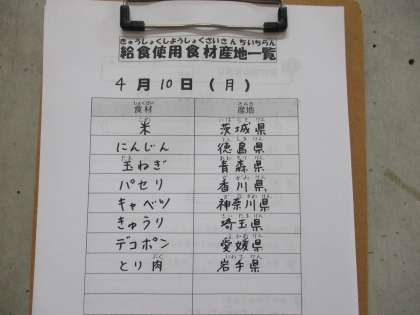 きゅうしょくしようしょくざいさんちいちらん
給食使用食材産地一覧
4月10日(月)
食材 産地
米 茨城県
にんじん 徳島県
玉ねぎ 青森県
パセリ 香川県
キャベツ 神奈川県
きゅうり 埼玉県
デコポン 愛媛県
とり肉 岩手県